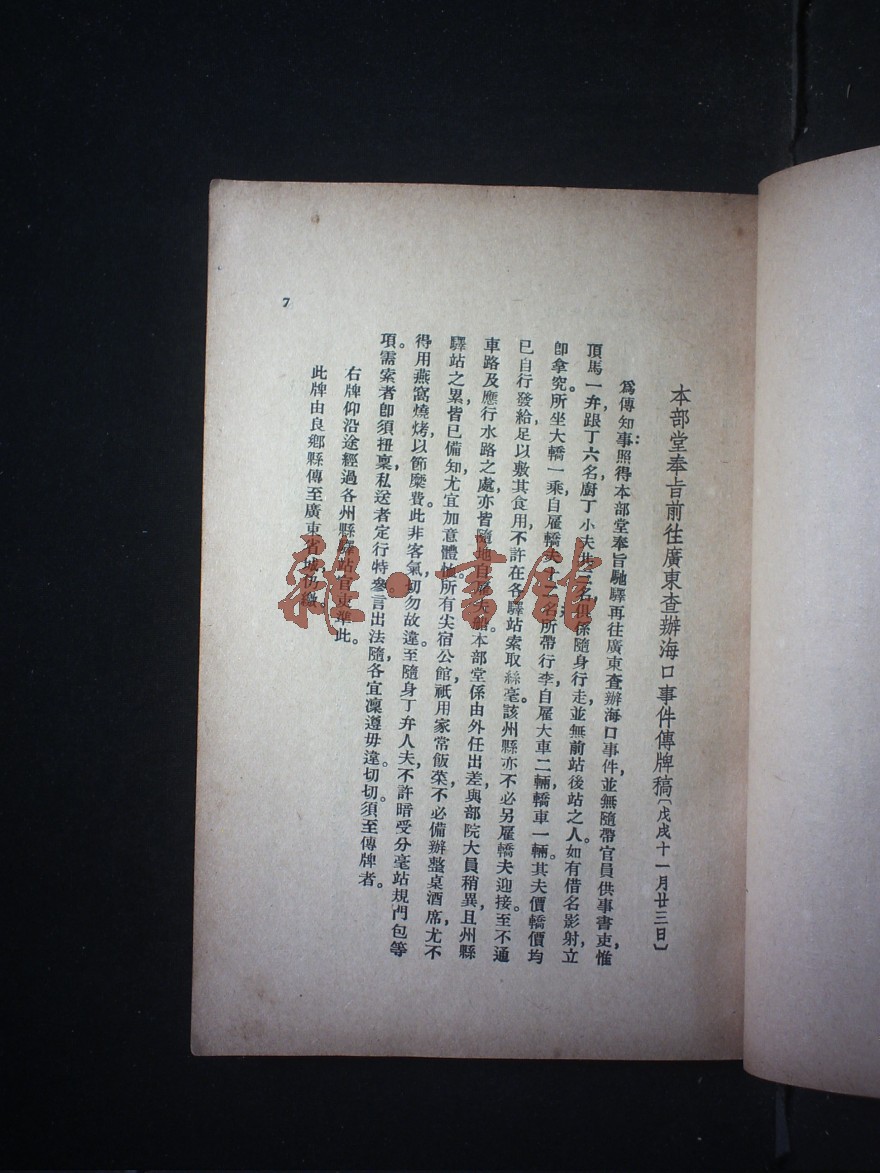 本部堂奉旨前往廣東查辦海口事件傳牌稿〔戊戌十一月廿三日〕
爲傳知事：照得本部堂奉旨馳驛再往廣東查辦海口事件，並無隨帶官員供事書吏，惟
頂馬一弁，跟丁六名，廚丁小夫共三名，俱係隨身行走，並無前站後站之人。如有借名影射，立
卽拿究。所坐大轎一乘，自雇轎夫十二名，所帶行李，自雇大車二輛，轎車一輛。其夫價轎價均
已自行發給，足以敷其食用，不許在各驛站索取絲毫。該州縣亦不必另雇轎夫迎接。至不通
車路及應行水路之處，亦皆隨地自雇夫船。本部堂係由外任出差，與部院大員稍異，且州縣
驛站之累，皆已備知，尤宜加意體恤。所有尖宿公館，祇用家常飯菜，不必備辦整桌酒席，尤不
得用燕窩燒烤，以節糜費。此非客氣，切勿故違。至隨身丁弁人夫，不許暗受分毫站規門包等
項。需索者卽須扭稟，私送者定行特參。言出法隨，各宜凜遵毋違。切切。須至傳牌者。
右牌仰沿途經過各州縣驛站官吏準此。
此牌由良鄉縣傳至廣東省城仍繳。
7
雜·書館